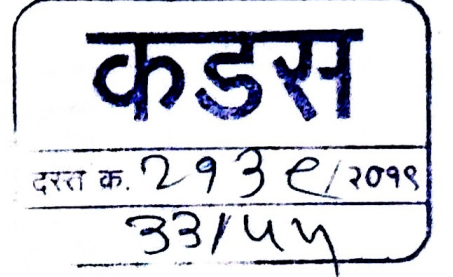 कडस
दस्त क. २१३९/२०१९
३३/५५